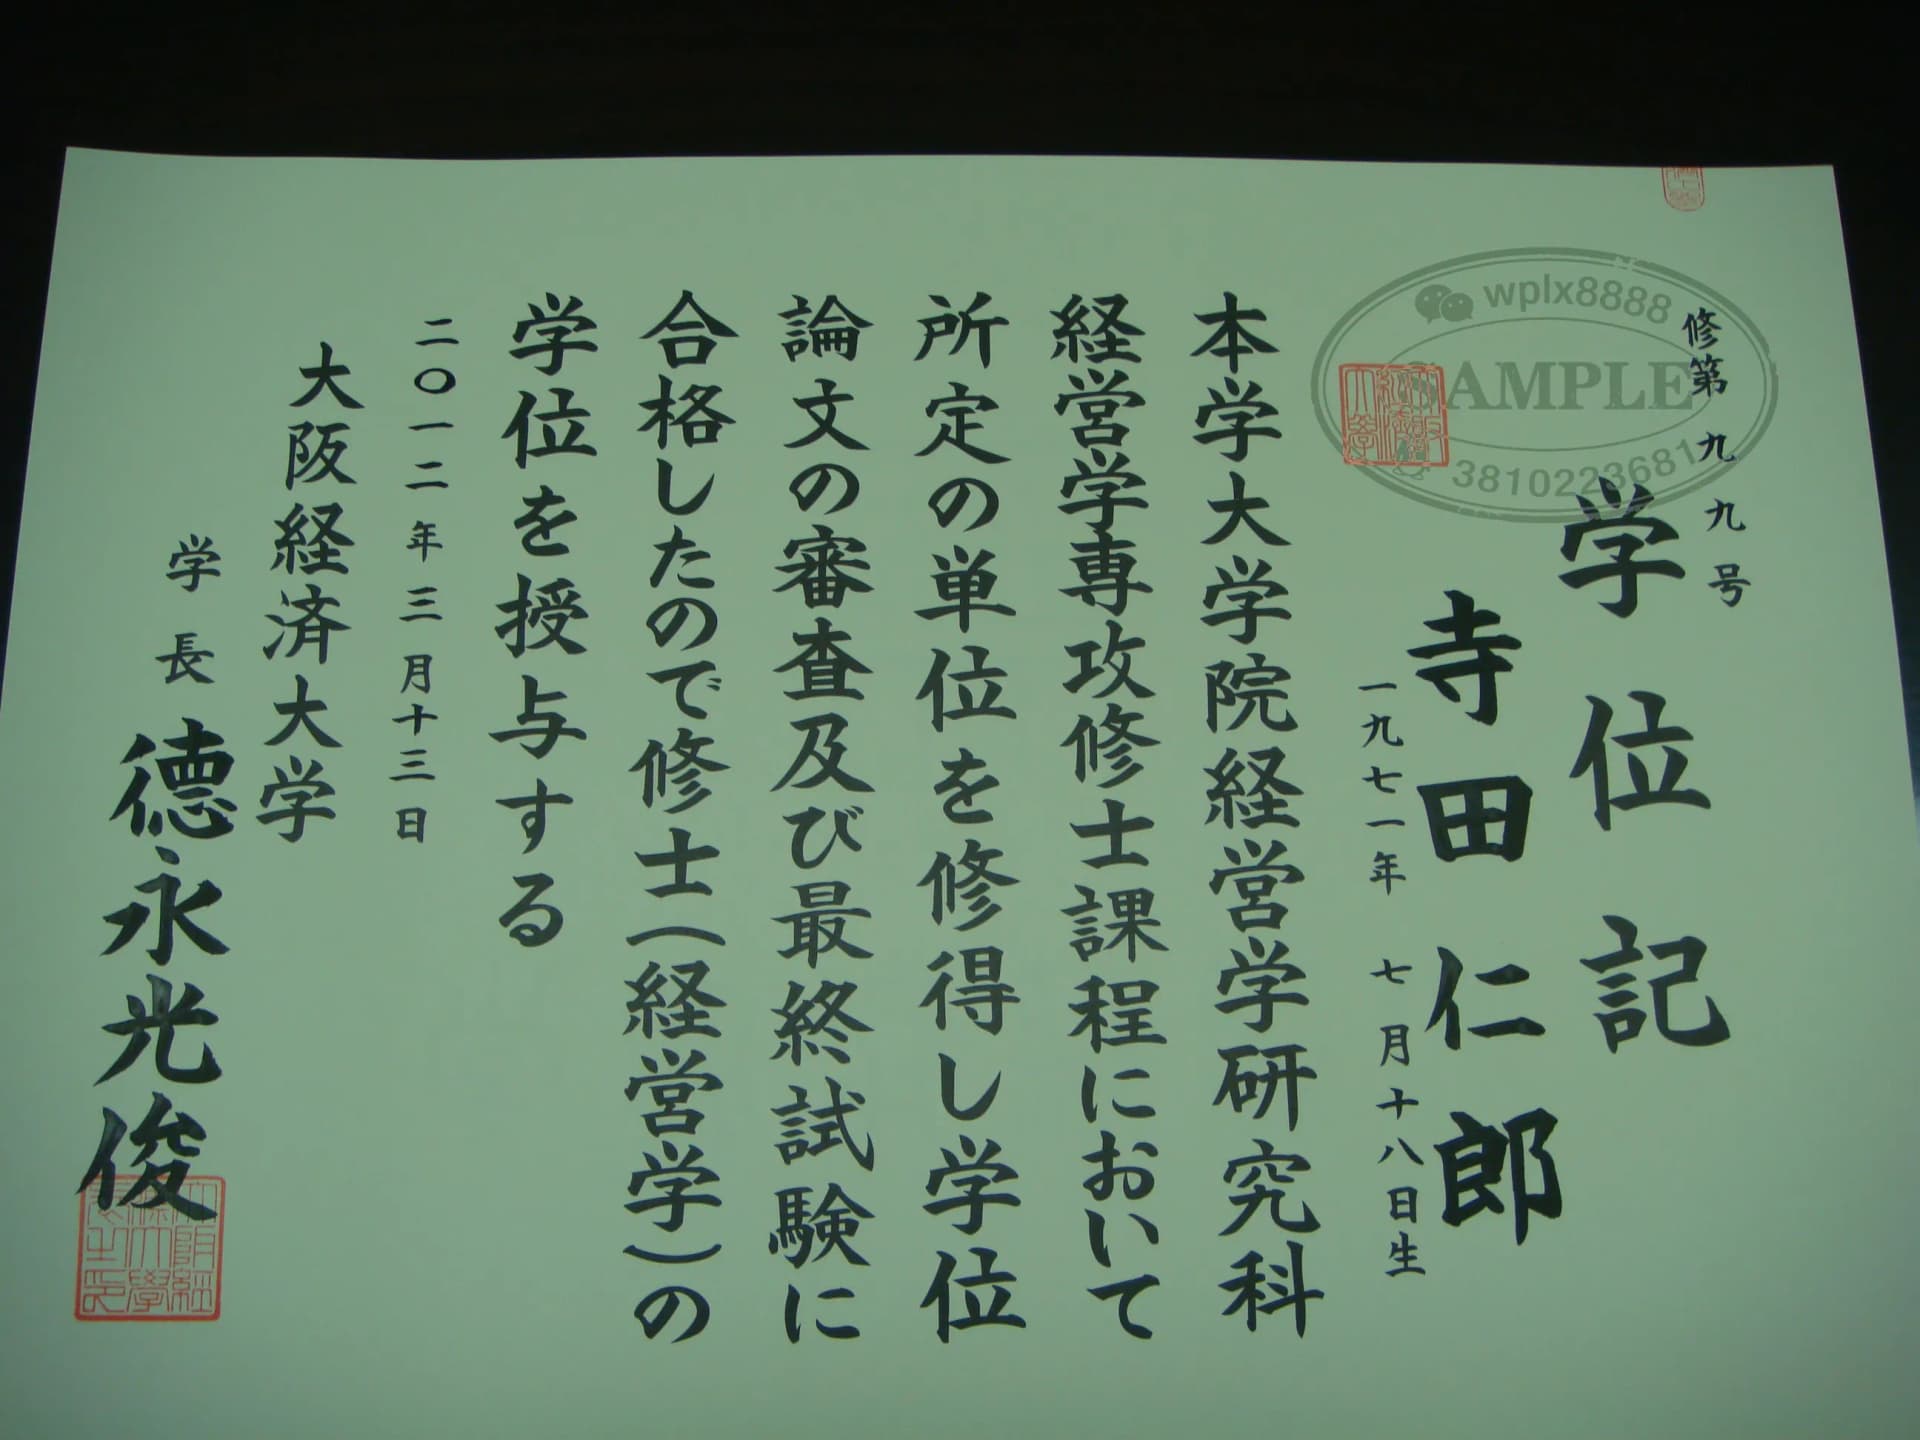 修第九九号
学位記
寺田仁郎
一九七一年七月十八日生
本学大学院経営学研究科
経営学専攻修士課程において
所定の単位を修得し学位
論文の審査及び最終試験に
合格したので修士(経営学)の
学位を授与する
二〇一二年三月十三日
大阪経済大学
学長 德永光俊
wplx8888
SAMPLE
3810223681